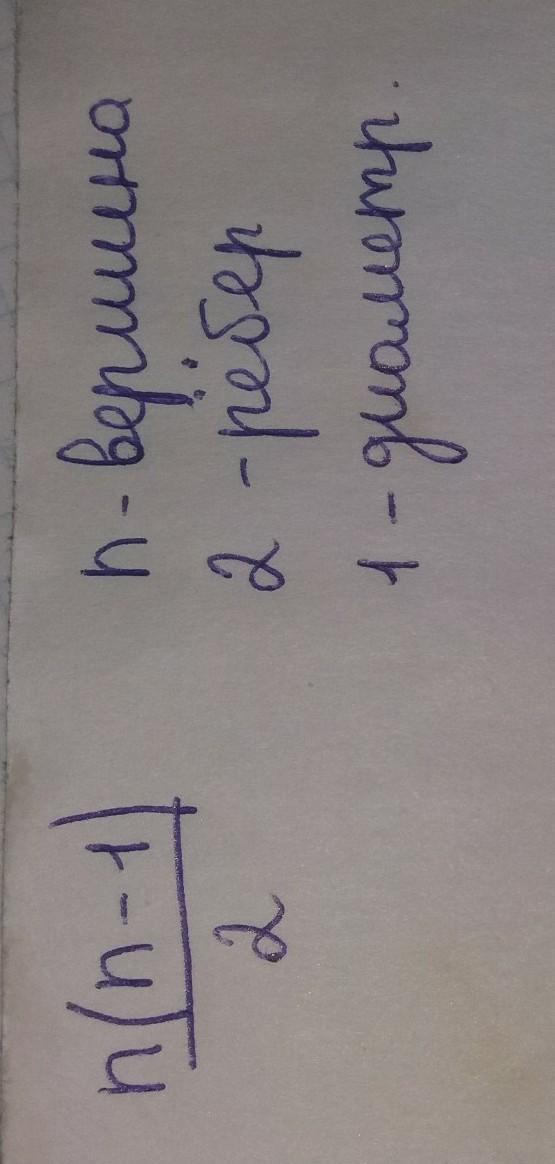 n(n-1)
2
n - вершина
2 - рёбер
1 - диаметр.